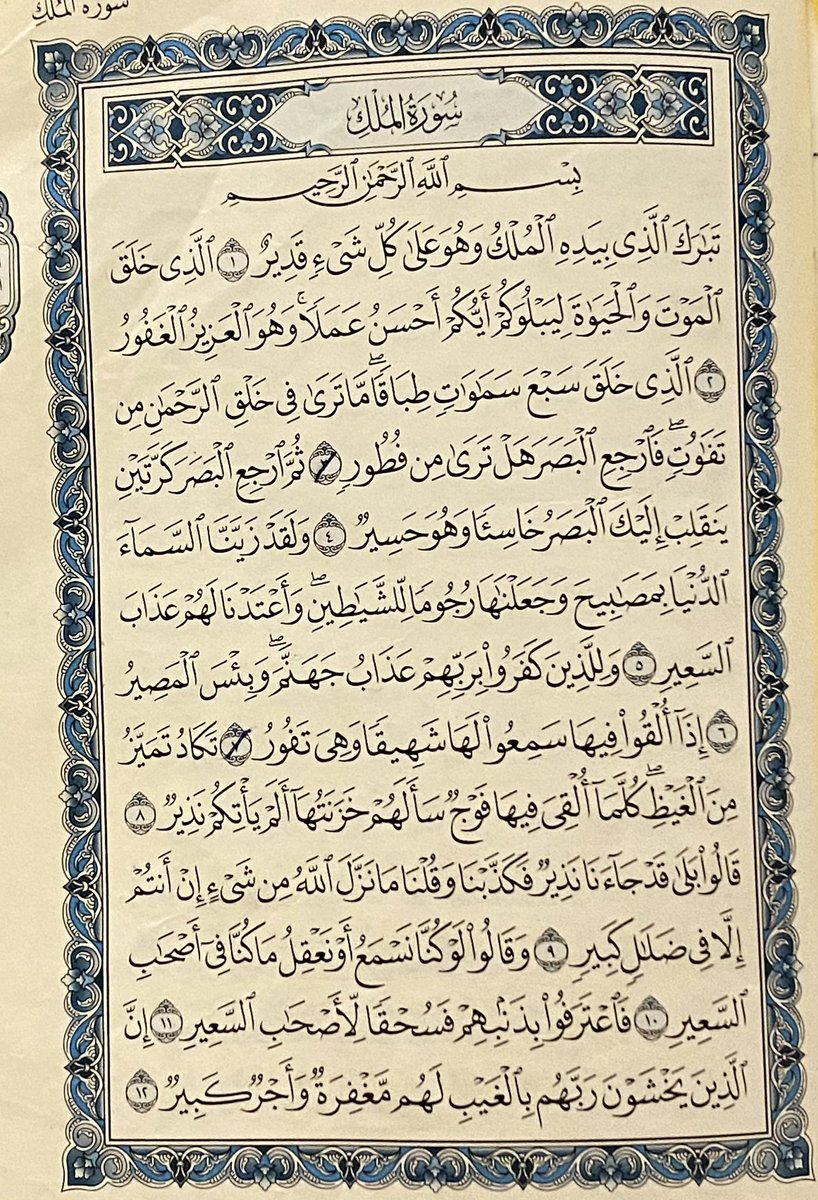 سورة الملك
سُورَةُ المُلْكِ
بِسْمِ ٱللَّهِ ٱلرَّحْمَٰنِ ٱلرَّحِيمِ
تَبَٰرَكَ ٱلَّذِى بِيَدِهِ ٱلْمُلْكُ وَهُوَ عَلَىٰ كُلِّ شَىْءٍ قَدِيرٌ ١ ٱلَّذِى خَلَقَ
ٱلْمَوْتَ وَٱلْحَيَوٰةَ لِيَبْلُوَكُمْ أَيُّكُمْ أَحْسَنُ عَمَلًا ۚ وَهُوَ ٱلْعَزِيزُ ٱلْغَفُورُ
٢ ٱلَّذِى خَلَقَ سَبْعَ سَمَٰوَٰتٍ طِبَاقًا ۖ مَّا تَرَىٰ فِى خَلْقِ ٱلرَّحْمَٰنِ مِن
تَفَٰوُتٍ ۖ فَٱرْجِعِ ٱلْبَصَرَ هَلْ تَرَىٰ مِن فُطُورٍ ٣ ثُمَّ ٱرْجِعِ ٱلْبَصَرَ كَرَّتَيْنِ
يَنقَلِبْ إِلَيْكَ ٱلْبَصَرُ خَاسِئًا وَهُوَ حَسِيرٌ ٤ وَلَقَدْ زَيَّنَّا ٱلسَّمَآءَ
ٱلدُّنْيَا بِمَصَٰبِيحَ وَجَعَلْنَٰهَا رُجُومًا لِّلشَّيَٰطِينِ ۖ وَأَعْتَدْنَا لَهُمْ عَذَابَ
ٱلسَّعِيرِ ٥ وَلِلَّذِينَ كَفَرُوا۟ بِرَبِّهِمْ عَذَابُ جَهَنَّمَ ۖ وَبِئْسَ ٱلْمَصِيرُ
٦ إِذَآ أُلْقُوا۟ فِيهَا سَمِعُوا۟ لَهَا شَهِيقًا وَهِىَ تَفُورُ ٧ تَكَادُ تَمَيَّزُ
مِنَ ٱلْغَيْظِ ۖ كُلَّمَآ أُلْقِىَ فِيهَا فَوْجٌ سَأَلَهُمْ خَزَنَتُهَآ أَلَمْ يَأْتِكُمْ نَذِيرٌ ٨
قَالُوا۟ بَلَىٰ قَدْ جَآءَنَا نَذِيرٌ فَكَذَّبْنَا وَقُلْنَا مَا نَزَّلَ ٱللَّهُ مِن شَىْءٍ إِنْ أَنتُمْ
إِلَّا فِى ضَلَٰلٍ كَبِيرٍ ٩ وَقَالُوا۟ لَوْ كُنَّا نَسْمَعُ أَوْ نَعْقِلُ مَا كُنَّا فِىٓ أَصْحَٰبِ
ٱلسَّعِيرِ ١٠ فَٱعْتَرَفُوا۟ بِذَنۢبِهِمْ فَسُحْقًا لِّأَصْحَٰبِ ٱلسَّعِيرِ ١١ إِنَّ
ٱلَّذِينَ يَخْشَوْنَ رَبَّهُم بِٱلْغَيْبِ لَهُم مَّغْفِرَةٌ وَأَجْرٌ كَبِيرٌ ١٢